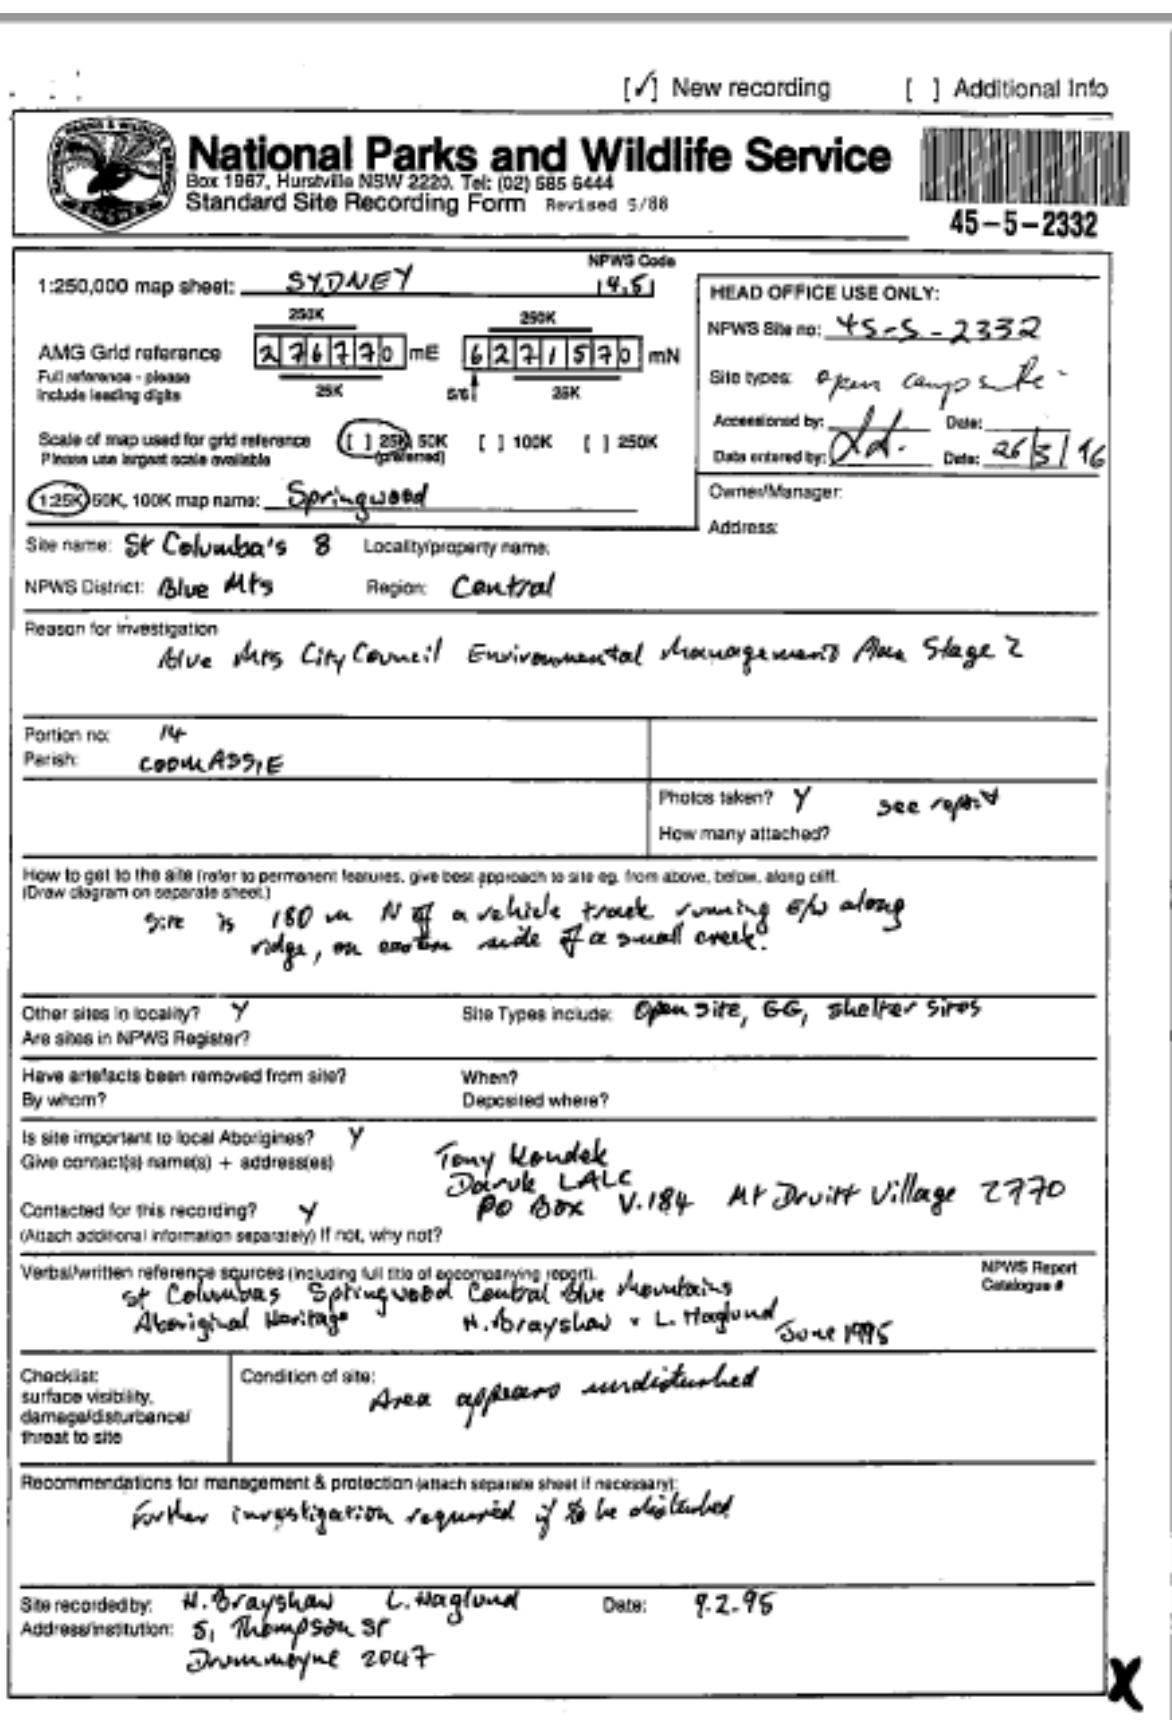 [✓] New recording [ ] Additional Info
National Parks and Wildlife Service
Box 1967, Hurstville NSW 2220. Tel: (02) 585 6444
Standard Site Recording Form Revised 5/88
45-5-2332
1:250,000 map sheet: SYDNEY NPWS Code
HEAD OFFICE USE ONLY:
250K 250K
NPWS Site no: 45-5-2332
AMG Grid reference 276770 mE 6271570 mN
Full reference - please include leading digits
25K 5/6 25K
Site types: open campsite
Accessioned by: Date:
Scale of map used for grid reference [ ] 25K, 50K (preferred) [ ] 100K [ ] 250K
Please use largest scale available
Data entered by: Date: 26/3/96
1:25K, 50K, 100K map name: Springwood
Owner/Manager:
Address:
Site name: St Columba's 8 Locality/property name:
NPWS District: Blue Mts Region: Central
Reason for investigation
Blue Mts City Council Environmental Management Stage 2
Portion no: 14
Parish: COOMASSIE
Photos taken? Y see report
How many attached?
How to get to the site (refer to permanent features, give best approach to site eg. from above, below, along cliff.
(Draw diagram on separate sheet.)
Site is 180 m N of a vehicle track running E/W along
ridge, on eastern side of a small creek.
Other sites in locality? Y Site Types include: Open site, GG, shelter sites
Are sites in NPWS Register?
Have artefacts been removed from site? When?
By whom? Deposited where?
Is site important to local Aborigines? Y
Give contact(s) name(s) + address(es) Tony Kondek
Daruk LALC
Contacted for this recording? Y PO Box V.184 Mt Druitt Village 2770
(Attach additional information separately) If not, why not?
Verbal/written reference sources (including full title of accompanying report). NPWS Report Catalogue #
St Columbas Springwood Central Blue Mountains
Aboriginal Heritage H. Brayshaw & L. Haglund June 1995
Checklist:
surface visibility,
damage/disturbance/
threat to site
Condition of site:
Area appears undisturbed
Recommendations for management & protection (attach separate sheet if necessary):
Further investigation required if to be disturbed
Site recorded by: H. Brayshaw L. Haglund Date: 9.2.95
Address/institution: 5, Thompson St
Drummoyne 2047
X